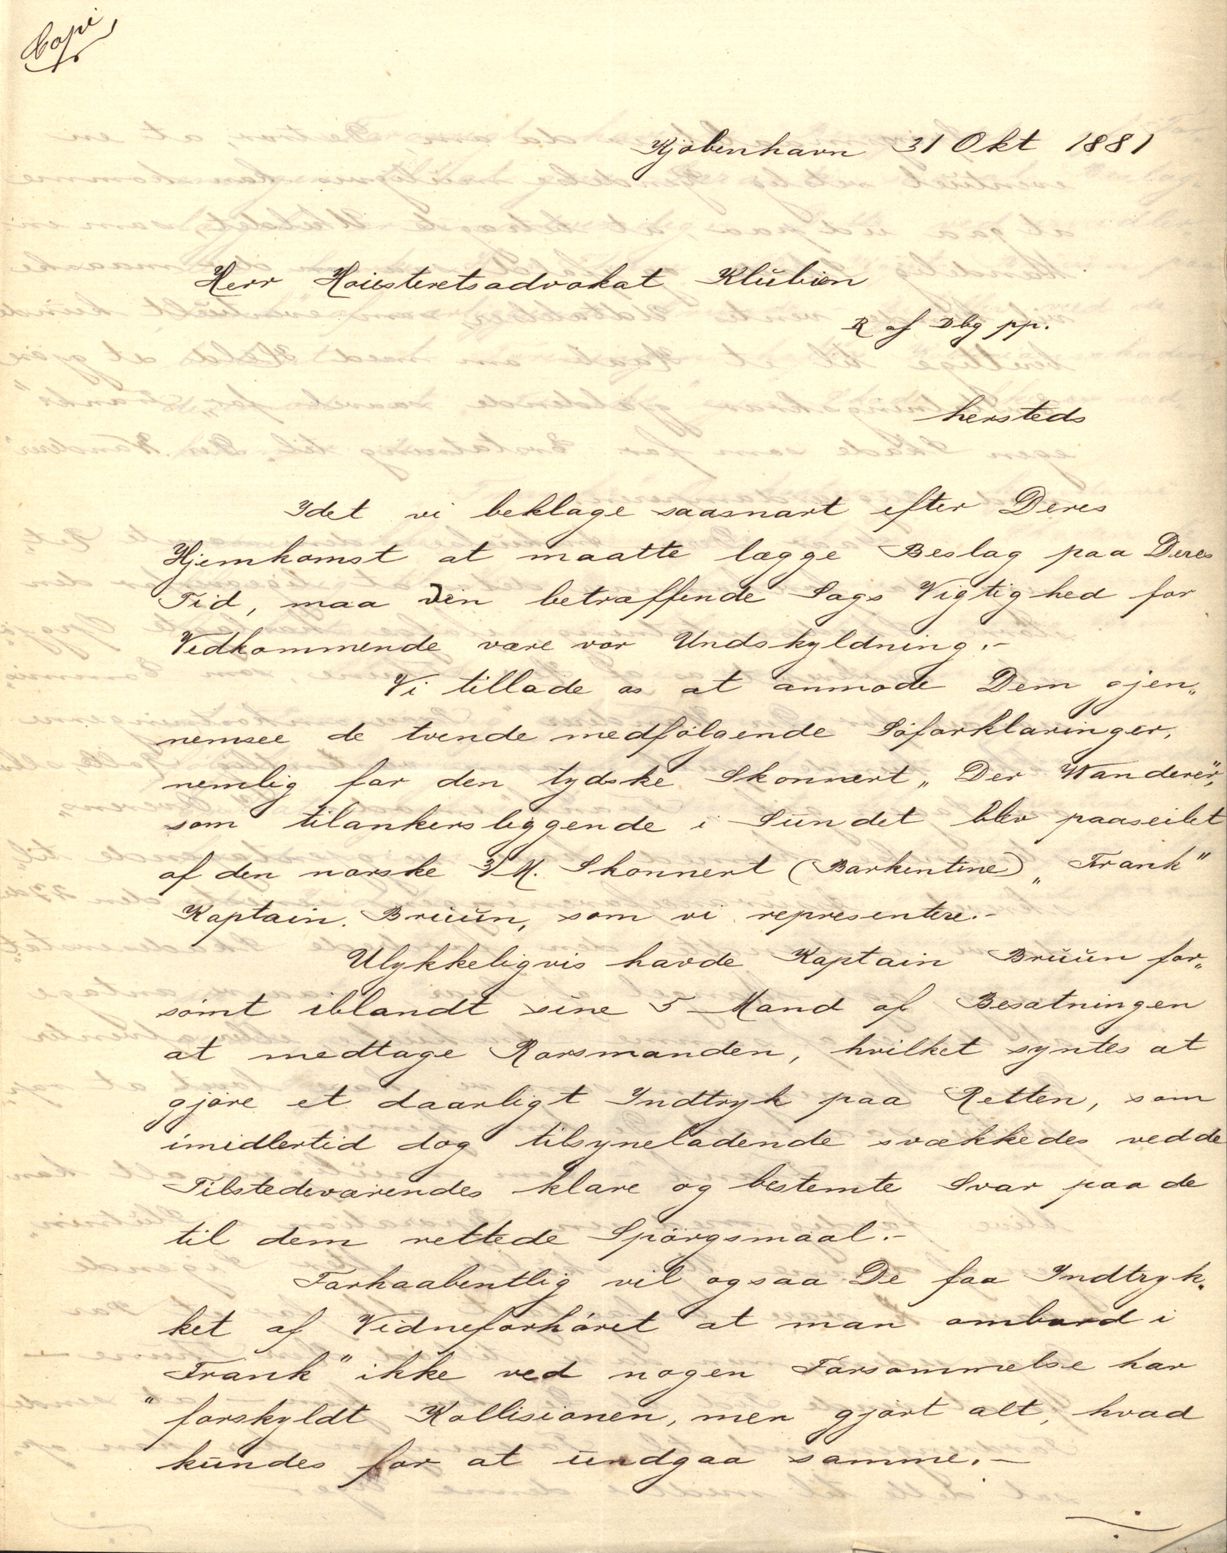 Copi
Kjøbenhavn 31 Okt 1881
Herr Høiesteretsadvokat Klubien
R af Dbg pp.
hersteds
Idet vi beklage saasnart efter Deres
Hjemkomst at maatte lægge Beslag paa Deres
Tid, maa den betræffende Sags Vigtighed for
Vedkommende være vor Undskyldning.-
Vi tillade os at anmode Dem gjen„
nemsee de tvende medfølgende Søforklaringer,
nemlig for den tydske Skonnert „Der Wanderer“,
som tilankersliggende i Sundet blev paaseilet
af den norske 3/M. Skonnert (Barkentine) „Frank“
Kaptain Bruun, som vi representere.-
Ulykkeligvis havde Kaptain Bruun for„
sømt iblandt sine 5 Mand af Besætningen
at medtage Rorsmanden, hvilket syntes at
gjøre et daarligt Indtryk paa Retten, som
imidlertid dog tilsyneladende svækkedes ved de
Tilstedeværendes klare og bestemte Svar paa de
til dem rettede Spørgsmaal.-
Forhaabentlig vil ogsaa De faa Indtryk„
ket af Vidneforhøret at man ombord i
„Frank“ ikke ved nogen Forsømmelse har
forskyldt Kollisionen, men gjort alt, hvad
kundes for at undgaa samme.-